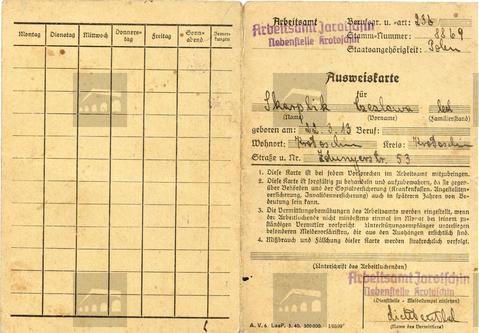 Montag Dienstag Mittwoch Donners-tag Freitag Sonn-abend Bemer-kungen
Arbeitsamt
Arbeitsamt Jarotschin
Nebenstelle Krotoschin
Berufsgr. u. -art: 23b
Stamm-Nummer: 8869
Staatsangehörigkeit: Polen
Ausweiskarte
für
Skorplik Czeslawa led
(Name) (Vorname) (Familienstand)
geboren am: 22.3.13 Beruf:
Wohnort: Krotoschin Kreis: Krotoschin
Straße u. Nr. 53
1. Diese Karte ist bei jedem Vorsprechen im Arbeitsamt mitzubringen.
2. Diese Karte ist sorgfältig zu behandeln und aufzubewahren, da sie gegen-
über Behörden und der Sozialversicherung (Krankenkassen, Angestellten-
versicherung, Invalidenversicherung) auch in späteren Jahren von Bedeu-
tung sein kann.
3. Die Vermittlungsbemühungen des Arbeitsamts werden eingestellt, wenn
der Arbeitsuchende nicht mindestens einmal im Monat bei seinem zu-
ständigen Vermittler vorspricht. Unterstützungsempfänger unterliegen
besonderen Meldevorschriften, die aus den Aushängen ersichtlich sind.
4. Mißbrauch und Fälschung dieser Karte werden strafrechtlich verfolgt.
(Unterschrift des Arbeitsuchenden)
Arbeitsamt Jarotschin
Nebenstelle Krotoschin
(Dienststelle - Meldestempel einsetzen)
(Name des Vermittlers)
A. V. 6. 3. 40. 300000.